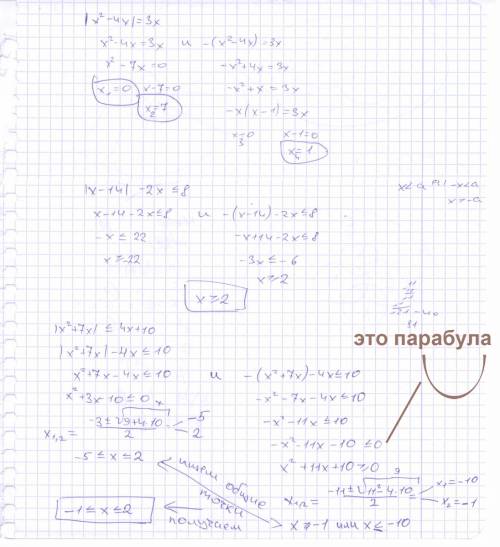 |x²-4x|=3x
x²-4x=3x и -(x²-4x)=3x
x²-7x=0 -x²+4x=3x
x₁=0 x-7=0 -x²+x=3x
x₂=7 -x(x-1)=3x
x₃=0 x-1=0
x₄=1
|x-14|-2x≤8
x-14-2x≤8 и -(x-14)-2x≤8
-x≤22 -x+14-2x≤8
x≥-22 -3x≤-6
x≥2
x≥2
это парабула
|x²+7x|≤4x+10
|x²+7x|-4x≤10
x²+7x-4x≤10 и -(x²+7x)-4x≤10
x²+3x-10≤0 -x²-7x-4x≤10
-x²-11x≤10
x₁,₂= -3±√9+4·10 / 2 = -5 2
-x²-11x-10≤0
-5≤x≤2 x²+11x+10≥0
ищем общие точки
x₁,₂= -11±√11²-4·10 / 2 = x₁=-10 x₂=-1
9
-1≤x≤2 получаем x≥-1 или x≤-10